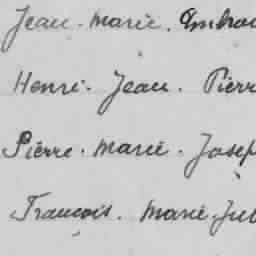 Jean. Marie. Embroi
Henri. Jean. Pierr
Pierre. Marie. Josep
François. Marie. Jul